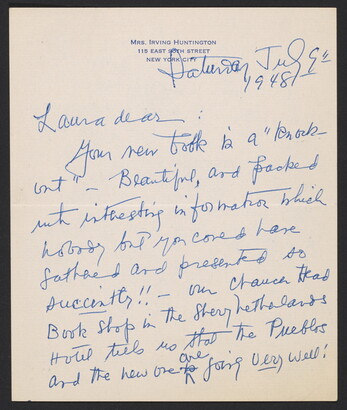 Mrs. Irving Huntington
115 East 90th Street
New York City
Saturday July 9th
1948
Laura dear :
Your new book is a "knock-
out" – Beautiful, and packed
with interesting information which
nobody but you could have
gathered and presented so
succintly!! – our Chaucer Head
Book Shop in the Sherry Netherlands
Hotel tells us that the Pueblos
and the new one are going very well!